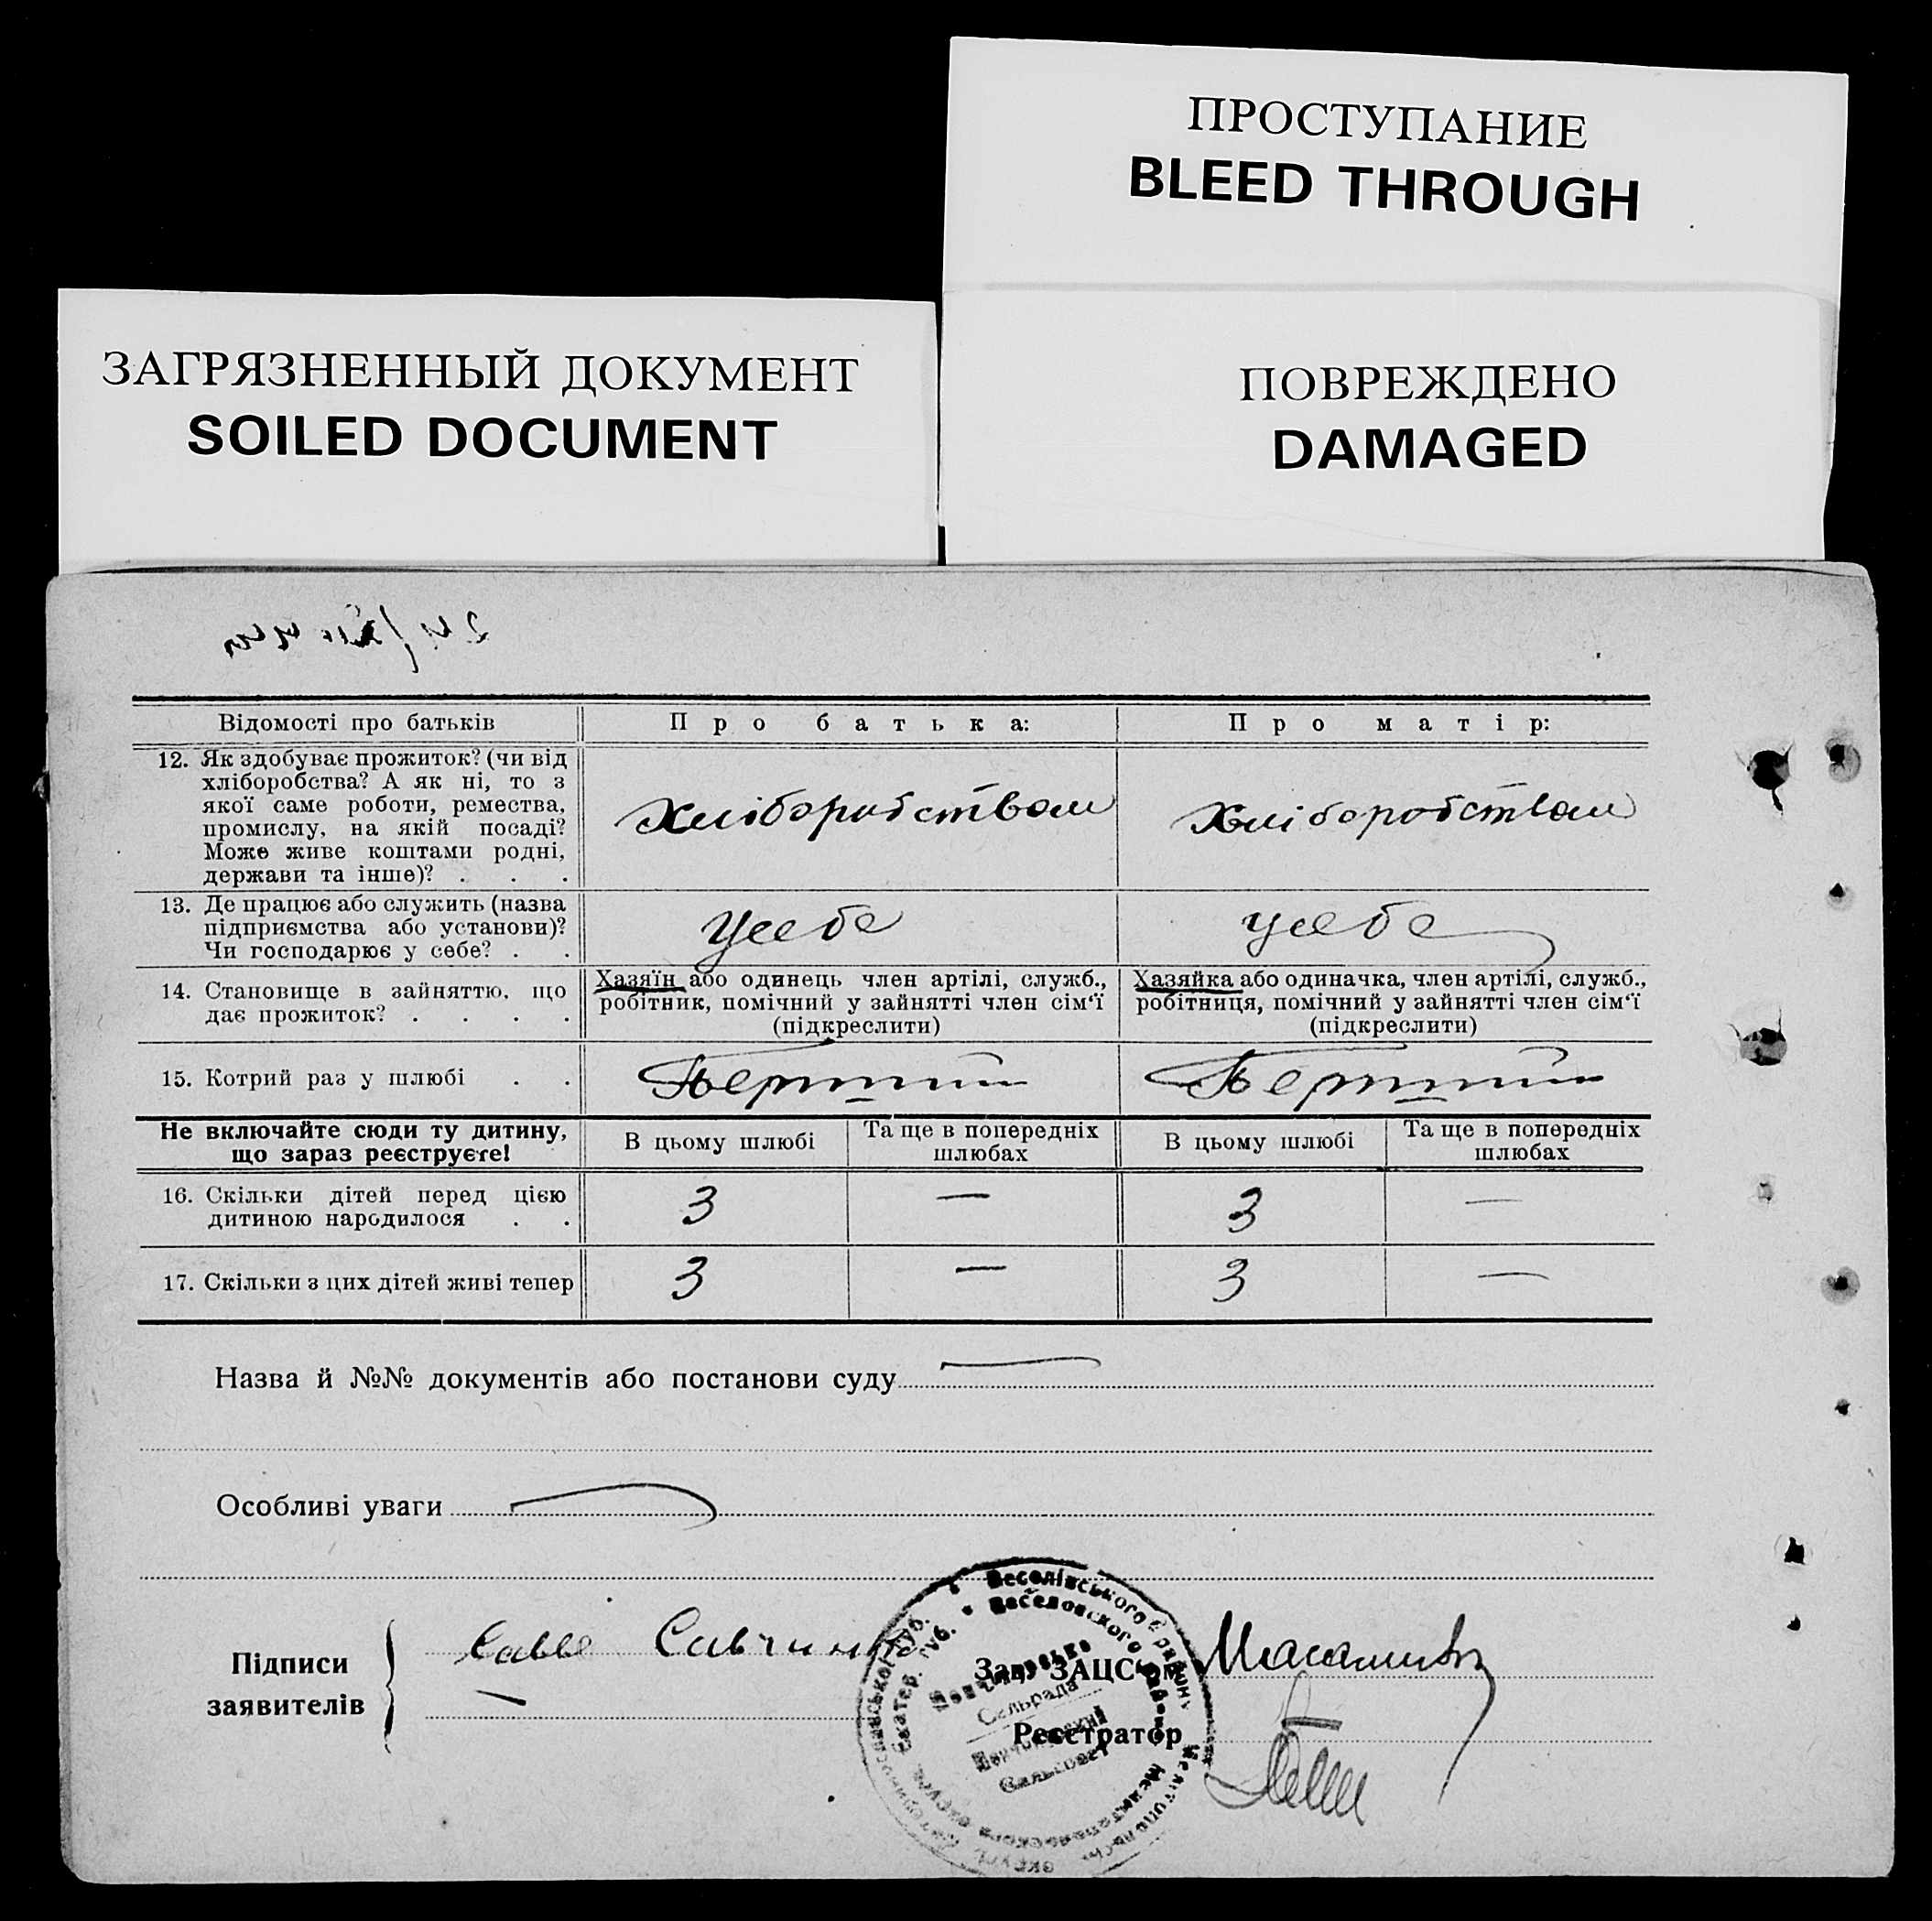 ПРОСТУПАНИЕ
BLEED THROUGH
ЗАГРЯЗНЕННЫЙ ДОКУМЕНТ
SOILED DOCUMENT
ПОВРЕЖДЕНО
DAMAGED
Відомості про батьків
Про батька:
Про матір:
12. Як здобуває прожиток? (чи від
хліборобства? А як ні, то з
якої саме роботи, ремества,
промислу, на якій посаді?
Може живе коштами родні,
держави та інше)? . . .
Хліборобством
Хліборобством
13. Де працює або служить (назва
підприємства або установи)?
Чи господарює у себе? . .
У себе
У себе
14. Становище в зайняттю, що
дає прожиток? . . . .
Хазяїн або одинець член артілі, служб.,
робітник, помічний у зайнятті член сім'ї
(підкреслити)
Хазяйка або одиначка, член артілі, служб.,
робітниця, помічний у зайнятті член сім'ї
(підкреслити)
15. Котрий раз у шлюбі . .
Перший
Перший
Не включайте сюди ту дитину,
що зараз реєструєте!
В цьому шлюбі
Та ще в попередніх
шлюбах
В цьому шлюбі
Та ще в попередніх
шлюбах
16. Скільки дітей перед цією
дитиною народилося . .
3
—
3
—
17. Скільки з цих дітей живі тепер
3
—
3
—
Назва й №№ документів або постанови суду
Особливі уваги
Підписи
заявителів
Зав. ЗАЦС'ом
Реєстратор
Веселівського району
Веселовского
Сільрада
Сельсовет